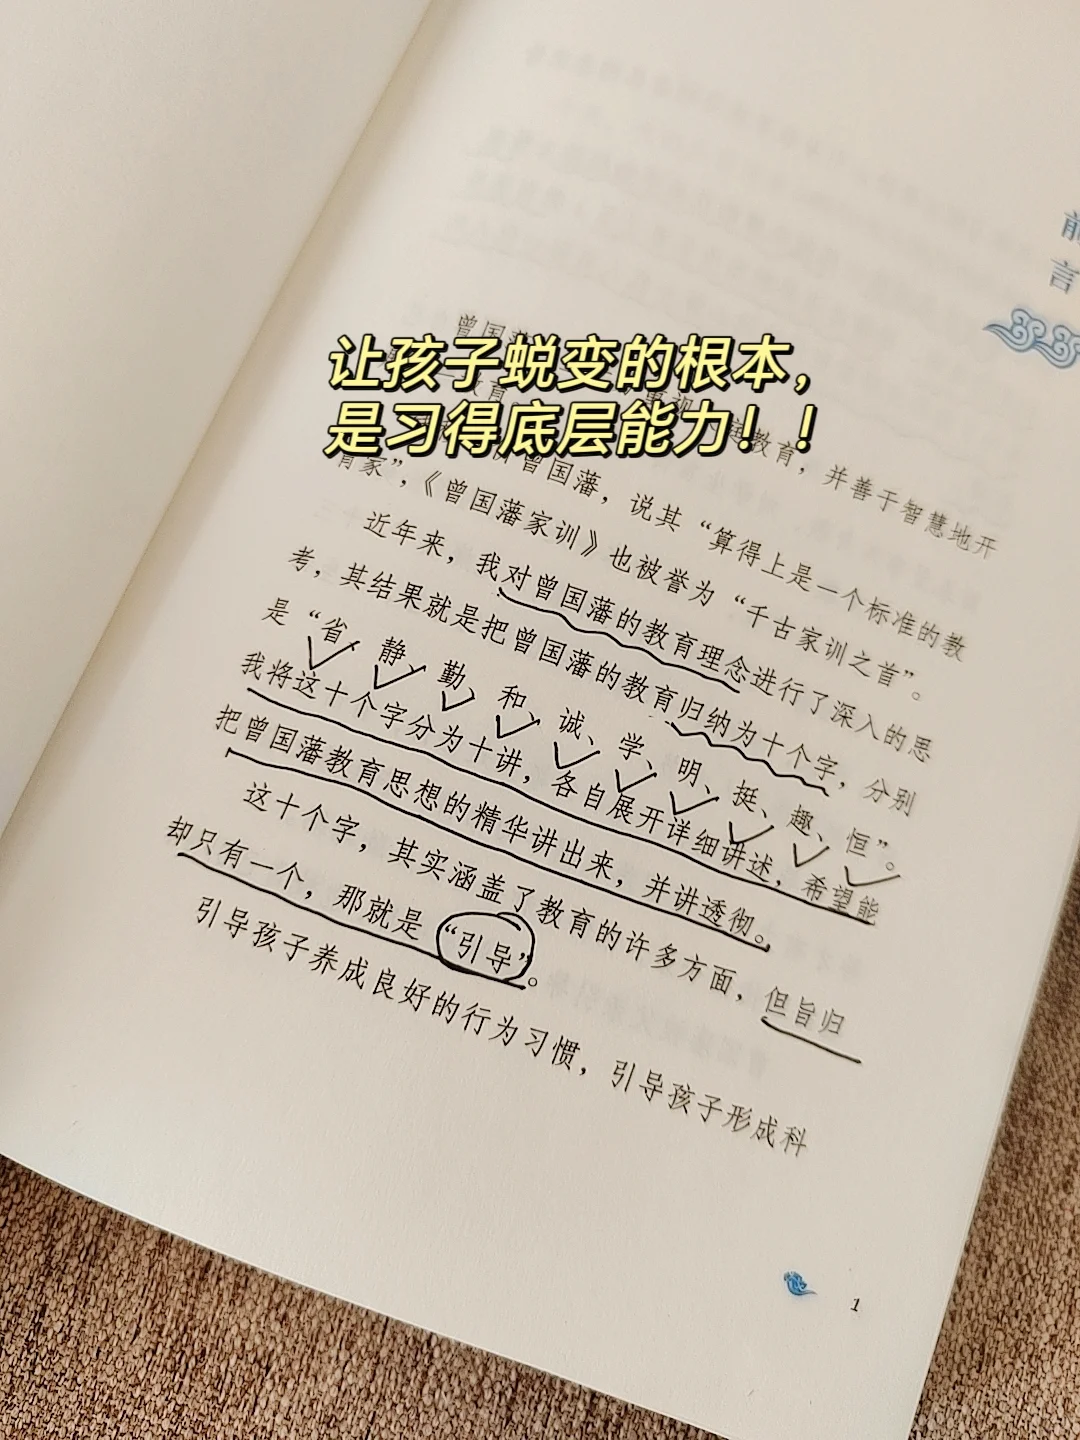 前
言
让孩子蜕变的根本，
是习得底层能力！！
曾国藩
教育
重视
教育，并善于智慧地开
曾国藩，说其“算得上是一个标准的教
育家”，《曾国藩家训》也被誉为“千古家训之首”。
近年来，我对曾国藩的教育理念进行了深入的思
考，其结果就是把曾国藩的教育归纳为十个字，分别
是“省、静、勤、和、诚、学、明、挺、趣、恒”。
我将这十个字分为十讲，各自展开详细讲述，希望能
把曾国藩教育思想的精华讲出来，并讲透彻。
这十个字，其实涵盖了教育的许多方面，但旨归
却只有一个，那就是“引导”。
引导孩子养成良好的行为习惯，引导孩子形成科
1